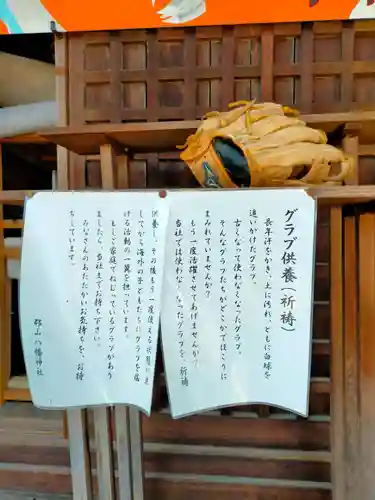 グラブ供養(祈祷)
長年汗をかき、土に汚れ、ともに白球を
追いかけたグラブ。
古くなって使わなくなったグラブ。
そんなグラブたちがどこかでほこりに
まみれていませんか?
もう一度活躍させてあげませんか?
当社では使わなくなったグラブを、祈祷
供養し、その後もう一度使える状態に直
してから海外の子どもたちにグラブを届
ける活動の一翼を担っています。
もしご家庭でねむっているグラブがあり
ましたら、当社までお持ち下さい。
みなさんのあたたかいお気持ちを、お待
ちしています。
郡山八幡神社